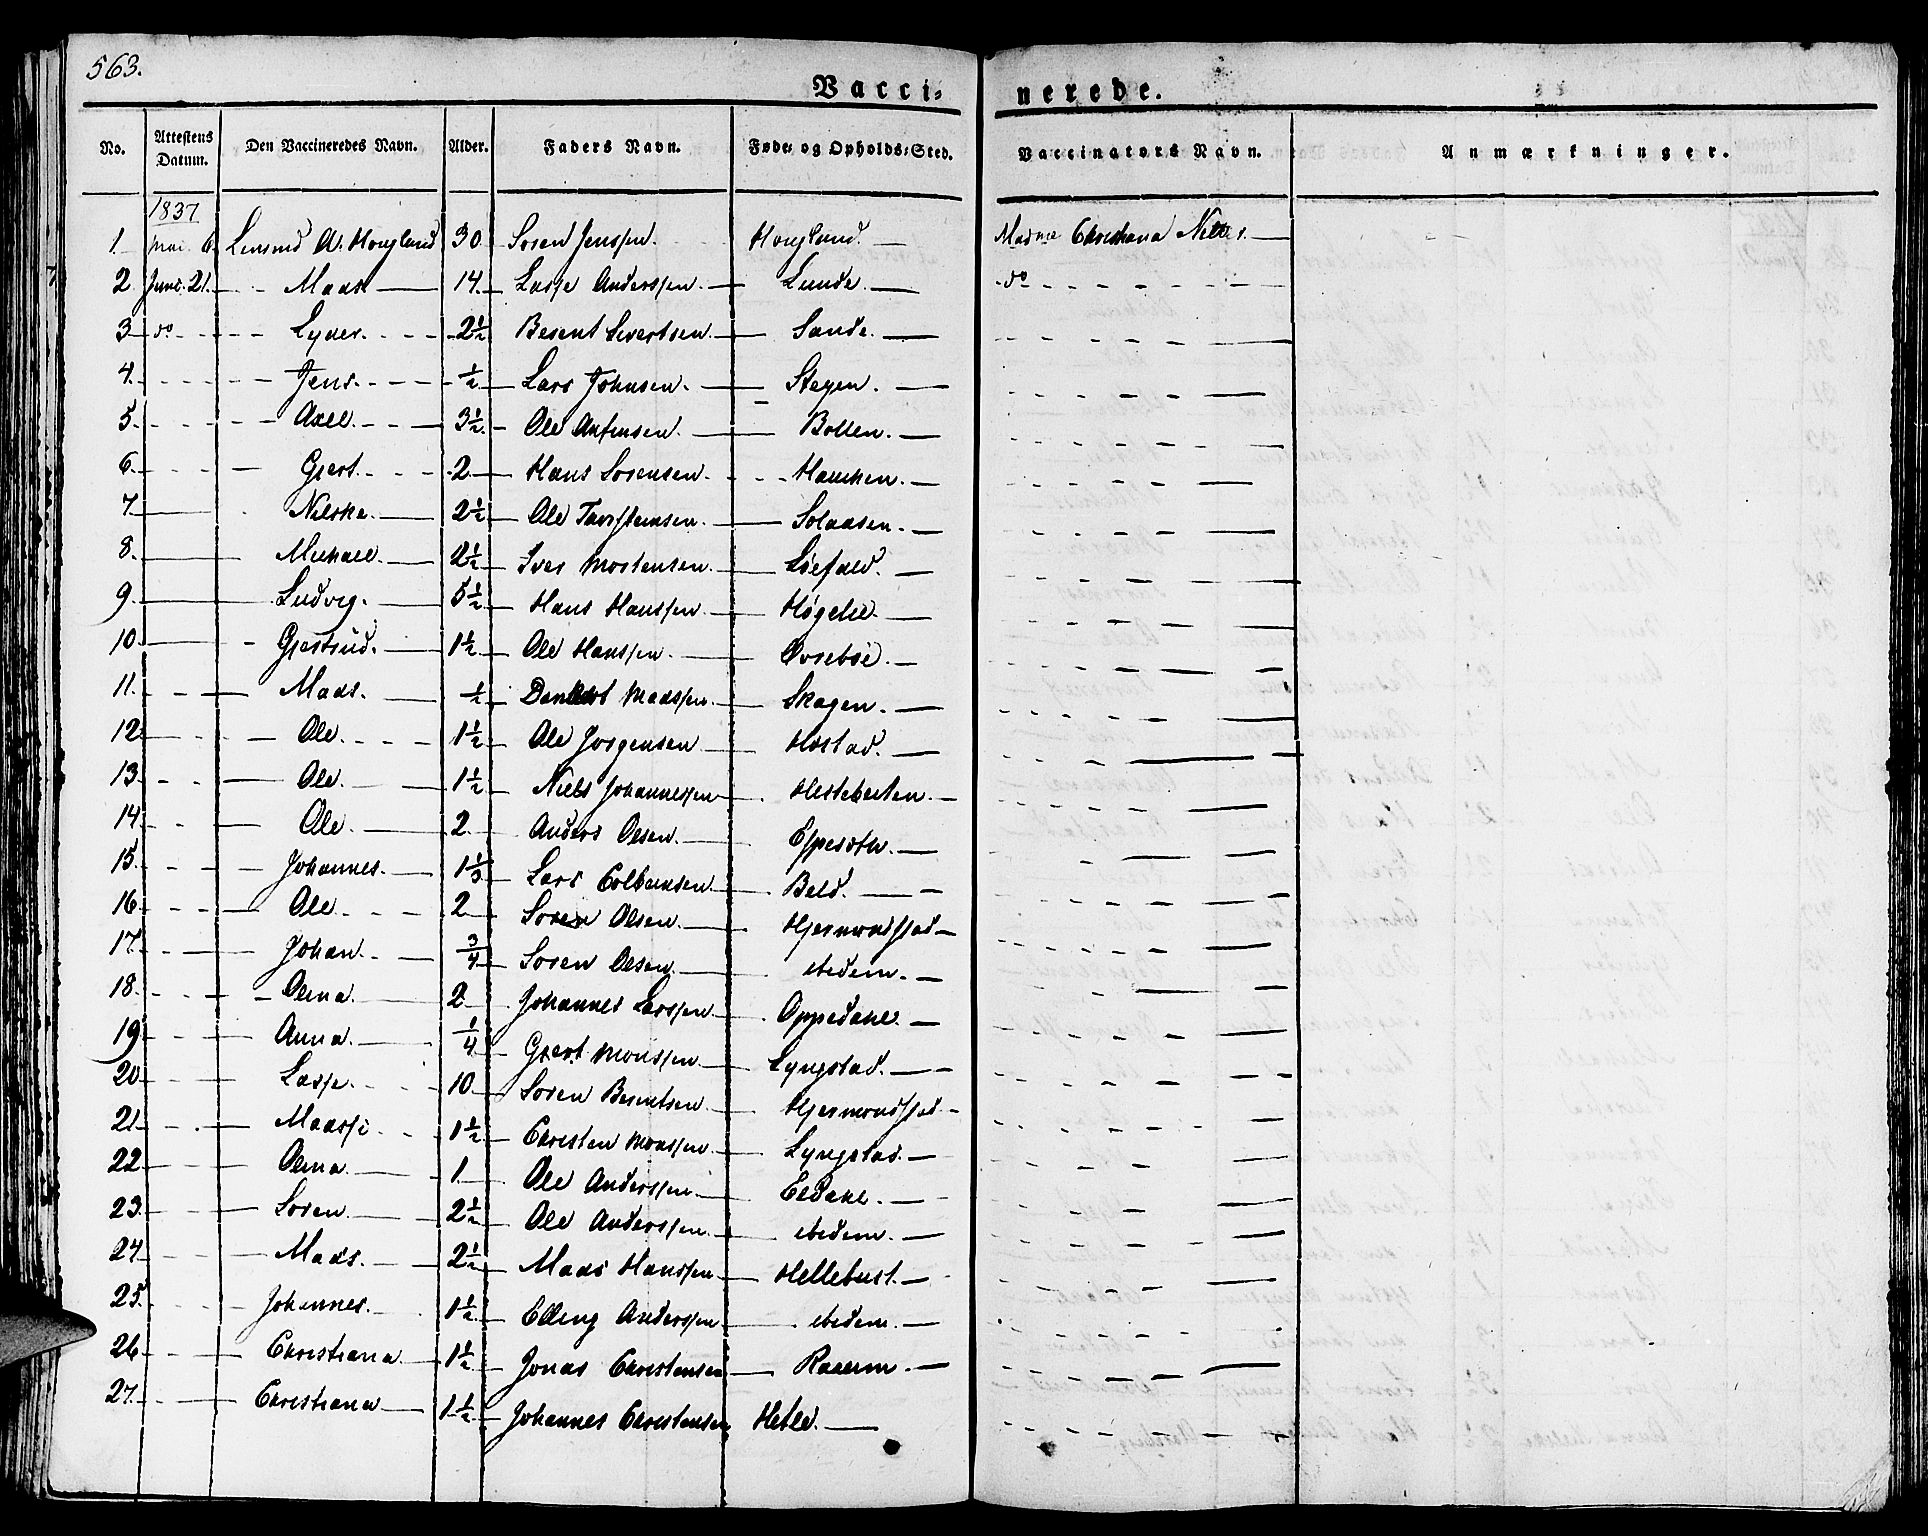 563.
Vacci- nerede.
No. Attestens Datum. Den Vaccineredes Navn. Alder. Faders Navn. Føde- og Opholds-Sted. Vaccinators Navn. Anmærkninger.
1837
1 Mai 6. A. Hougland 30 Soren Jenssen. Hougland. Christiana
2 Juni. 21. Mads 14. Lasse Anderssen. Lunde. do
3 do Lyder. 2½ Berent Sivertsen. Sande.
4. Jens. ½ Lars Johnsen. Steyen.
5. Axel. 3½ Ole Antensen. Bollen.
6. Gjert. 2 Hans Sorensen. Haucken.
7. Nilska. 2½ Ole Torstensen. Solaasen.
8. Michael. 2½ Iver Mortensen. Löefald.
9. Ludvig. 5½ Hans Hanssen. Høgelie.
10. Gjertrud. 1½ Ole Hanssen. Øvrebøe.
11. Mads. ½ Madssen. Skagen.
12. Ole. 1½ Ole Jorgensen Hostad.
13. Ole. 1½ Niels Johannessen
14. Ole. 2 Anders Olsen.
15. Johannes. 1⅓ Lars Colbensen Beld.
16. Ole. 2 Soren Olsen. Hjermondstad
17. Johan. ¾ Soren Olsen. ibidem.
18. Olina. 2 Johannes Larssen Oppedahl.
19. Anna. ¼ Gjert Monssen Lyngstad.
20 Lasse. 10 Soren Berentsen Hjermondstad.
21. Madssi 1½ Christen Monssen Lyngstad.
22 Olina. 1 Ole Anderssen Eldahl.
23. Soren. 2½ Ole Anderssen. ibidem.
24. Mads. 2½ Mads Hanssen Hellebust.
25. Johannes. 1½ Elling Anderssen ibidem.
26 Christiana 1½ Jonas Christensen
27. Christiana 1½ Johannes Christensen Hetle.